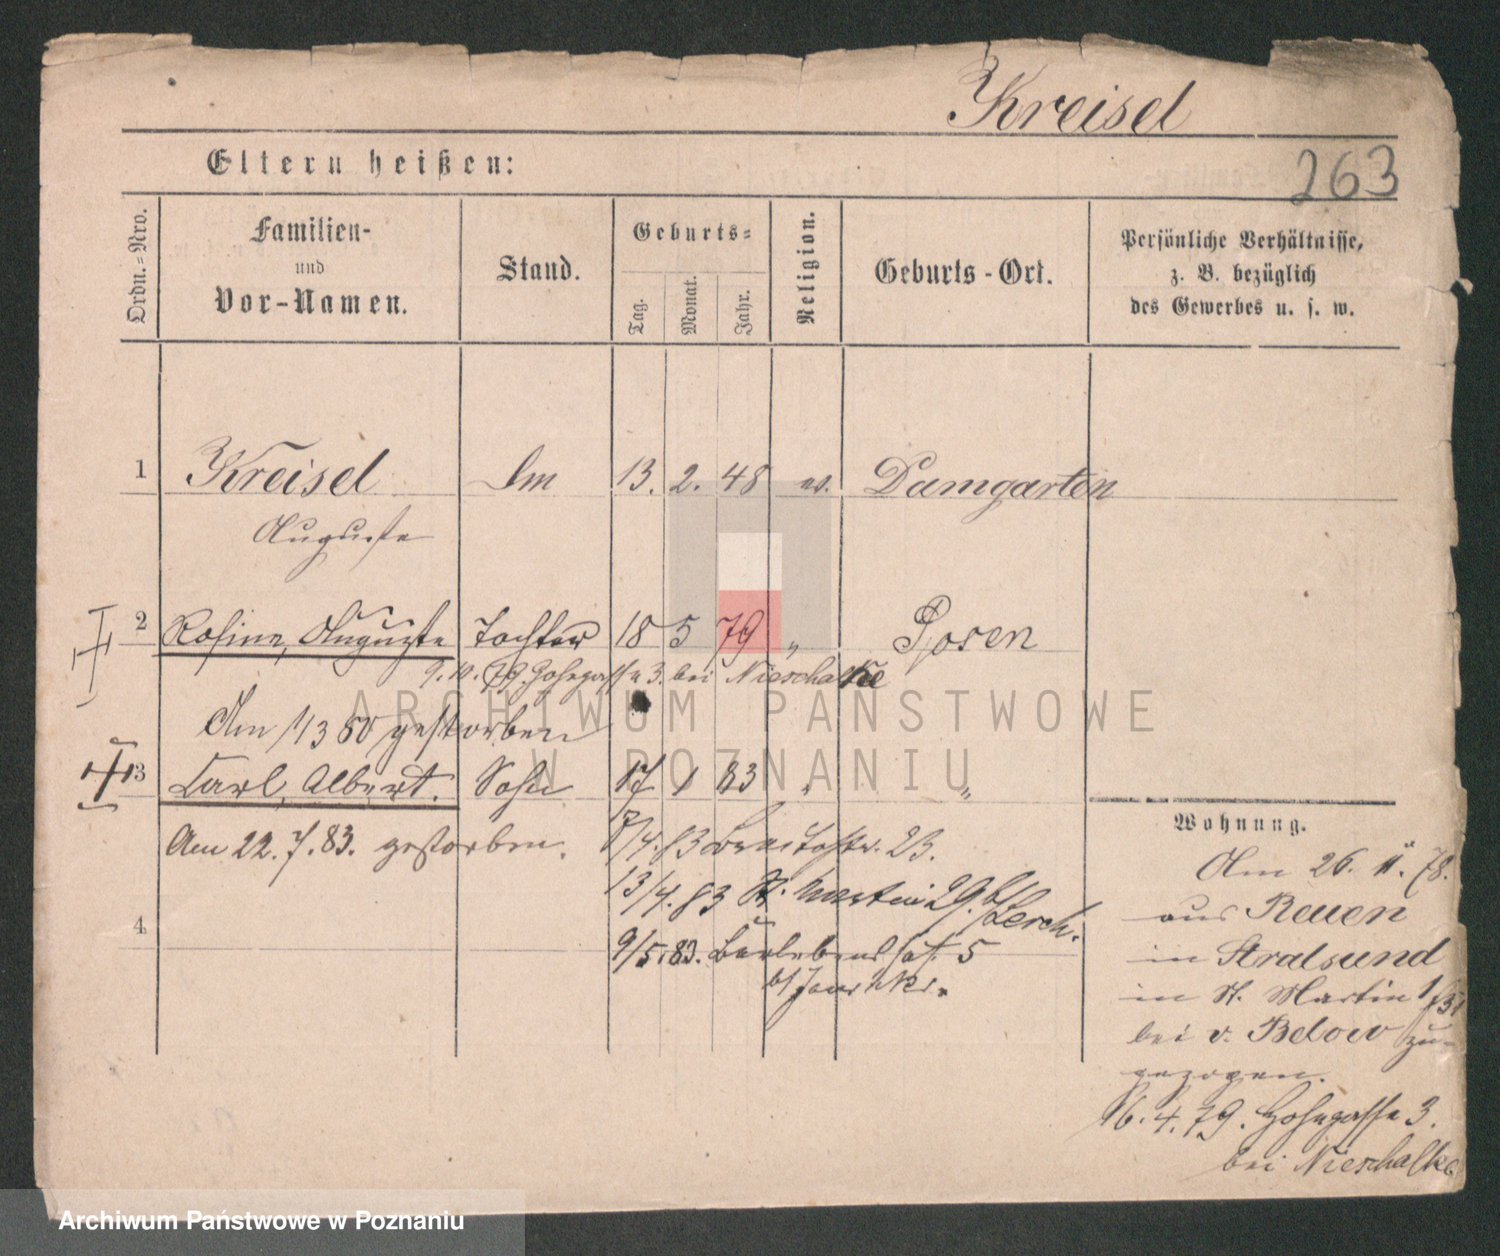 Kreisel
Eltern heißen:
263
Ordn.=Nro.
Familien-
und
Vor-Namen.
Stand.
Geburts=
Tag.
Monat.
Jahr.
Religion.
Geburts-Ort.
Persönliche Verhältnisse,
z. B. bezüglich
des Gewerbes u. s. w.
1 Kreisel 13. 2. 48 ev. Damgarten
Auguste
2 Rosina, Auguste Tochter 18 5 79 „ Posen
9. 10. 79. Hohegasse 3. bei Nieschalke
Am 1/3 80 gestorben
3 Carl, Albert. Sohn 17 1 83 „ „
Am 22. 7. 83. gestorben.
/4. 83 23.
13/4. 83 St. Martin 29. b/ Lerch.
4
9/5. 83. 5
b/
Wohnung.
Am 26. 11. 78.
aus Reuen
in Stralsund
in St. Martin
bei v. Below zu-
gezogen.
16. 4. 79. Hohegasse 3.
bei Nieschalke
ARCHIWUM PAŃSTWOWE
W POZNANIU
Archiwum Państwowe w Poznaniu